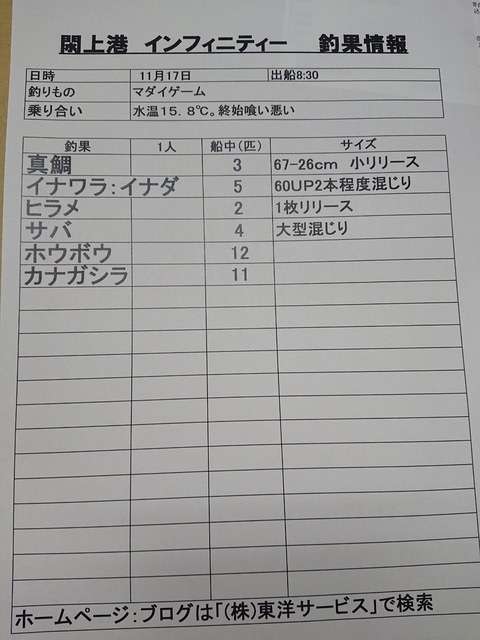 閖上港 インフィニティー 釣果情報
日時 11月17日 出船8:30
釣りもの マダイゲーム
乗り合い 水温15.8℃。終始喰い悪い
釣果 1人 船中(匹) サイズ
真鯛 3 67-26cm 小リリース
イナワラ:イナダ 5 60UP2本程度混じり
ヒラメ 2 1枚リリース
サバ 4 大型混じり
ホウボウ 12
カナガシラ 11
ホームページ:ブログは「(株)東洋サービス」で検索